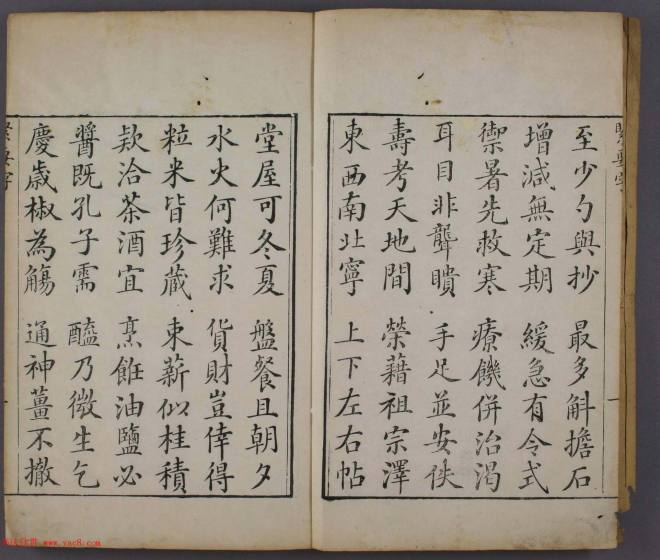 至少勺與抄 最多斛擔石
增減無定期 緩急有令式
禦暑先救寒 療饑併治渴
耳目非聾聵 手足並安佚
壽考天地間 榮藉祖宗澤
東西南北寧 上下左右帖
堂屋可冬夏 盤餐且朝夕
水火何難求 貨財豈倖得
粒米皆珍藏 束薪似桂積
款洽茶酒宜 烹飪油鹽必
醬既孔子需 醯乃微生乞
慶歲椒為觴 通神薑不撤
www.yac8.com